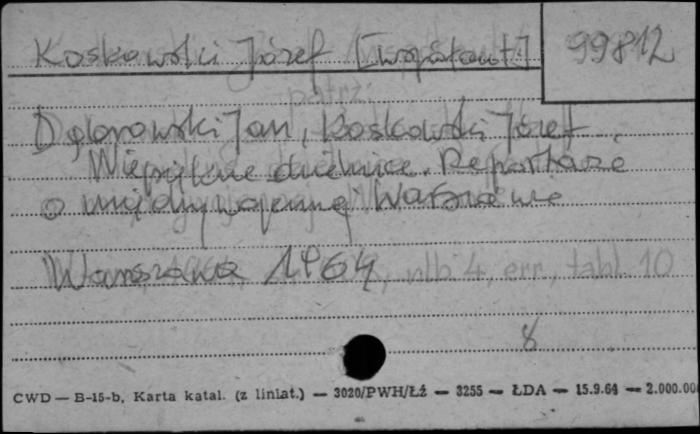 Koskowski Józef [współaut.]
99812
patrz:
Dąbrowski Jan, Koskowski Józef.
Niepiękne dzielnice. Reportaże
o międzywojennej Warszawie
Warszawa 1964
, nlb 4, err, tabl. 10
8
CWD — B-15-b, Karta katal. (z liniat.) — 3020/PWH/Łź — 3255 — ŁDA — 15.9.64 — 2.000.00